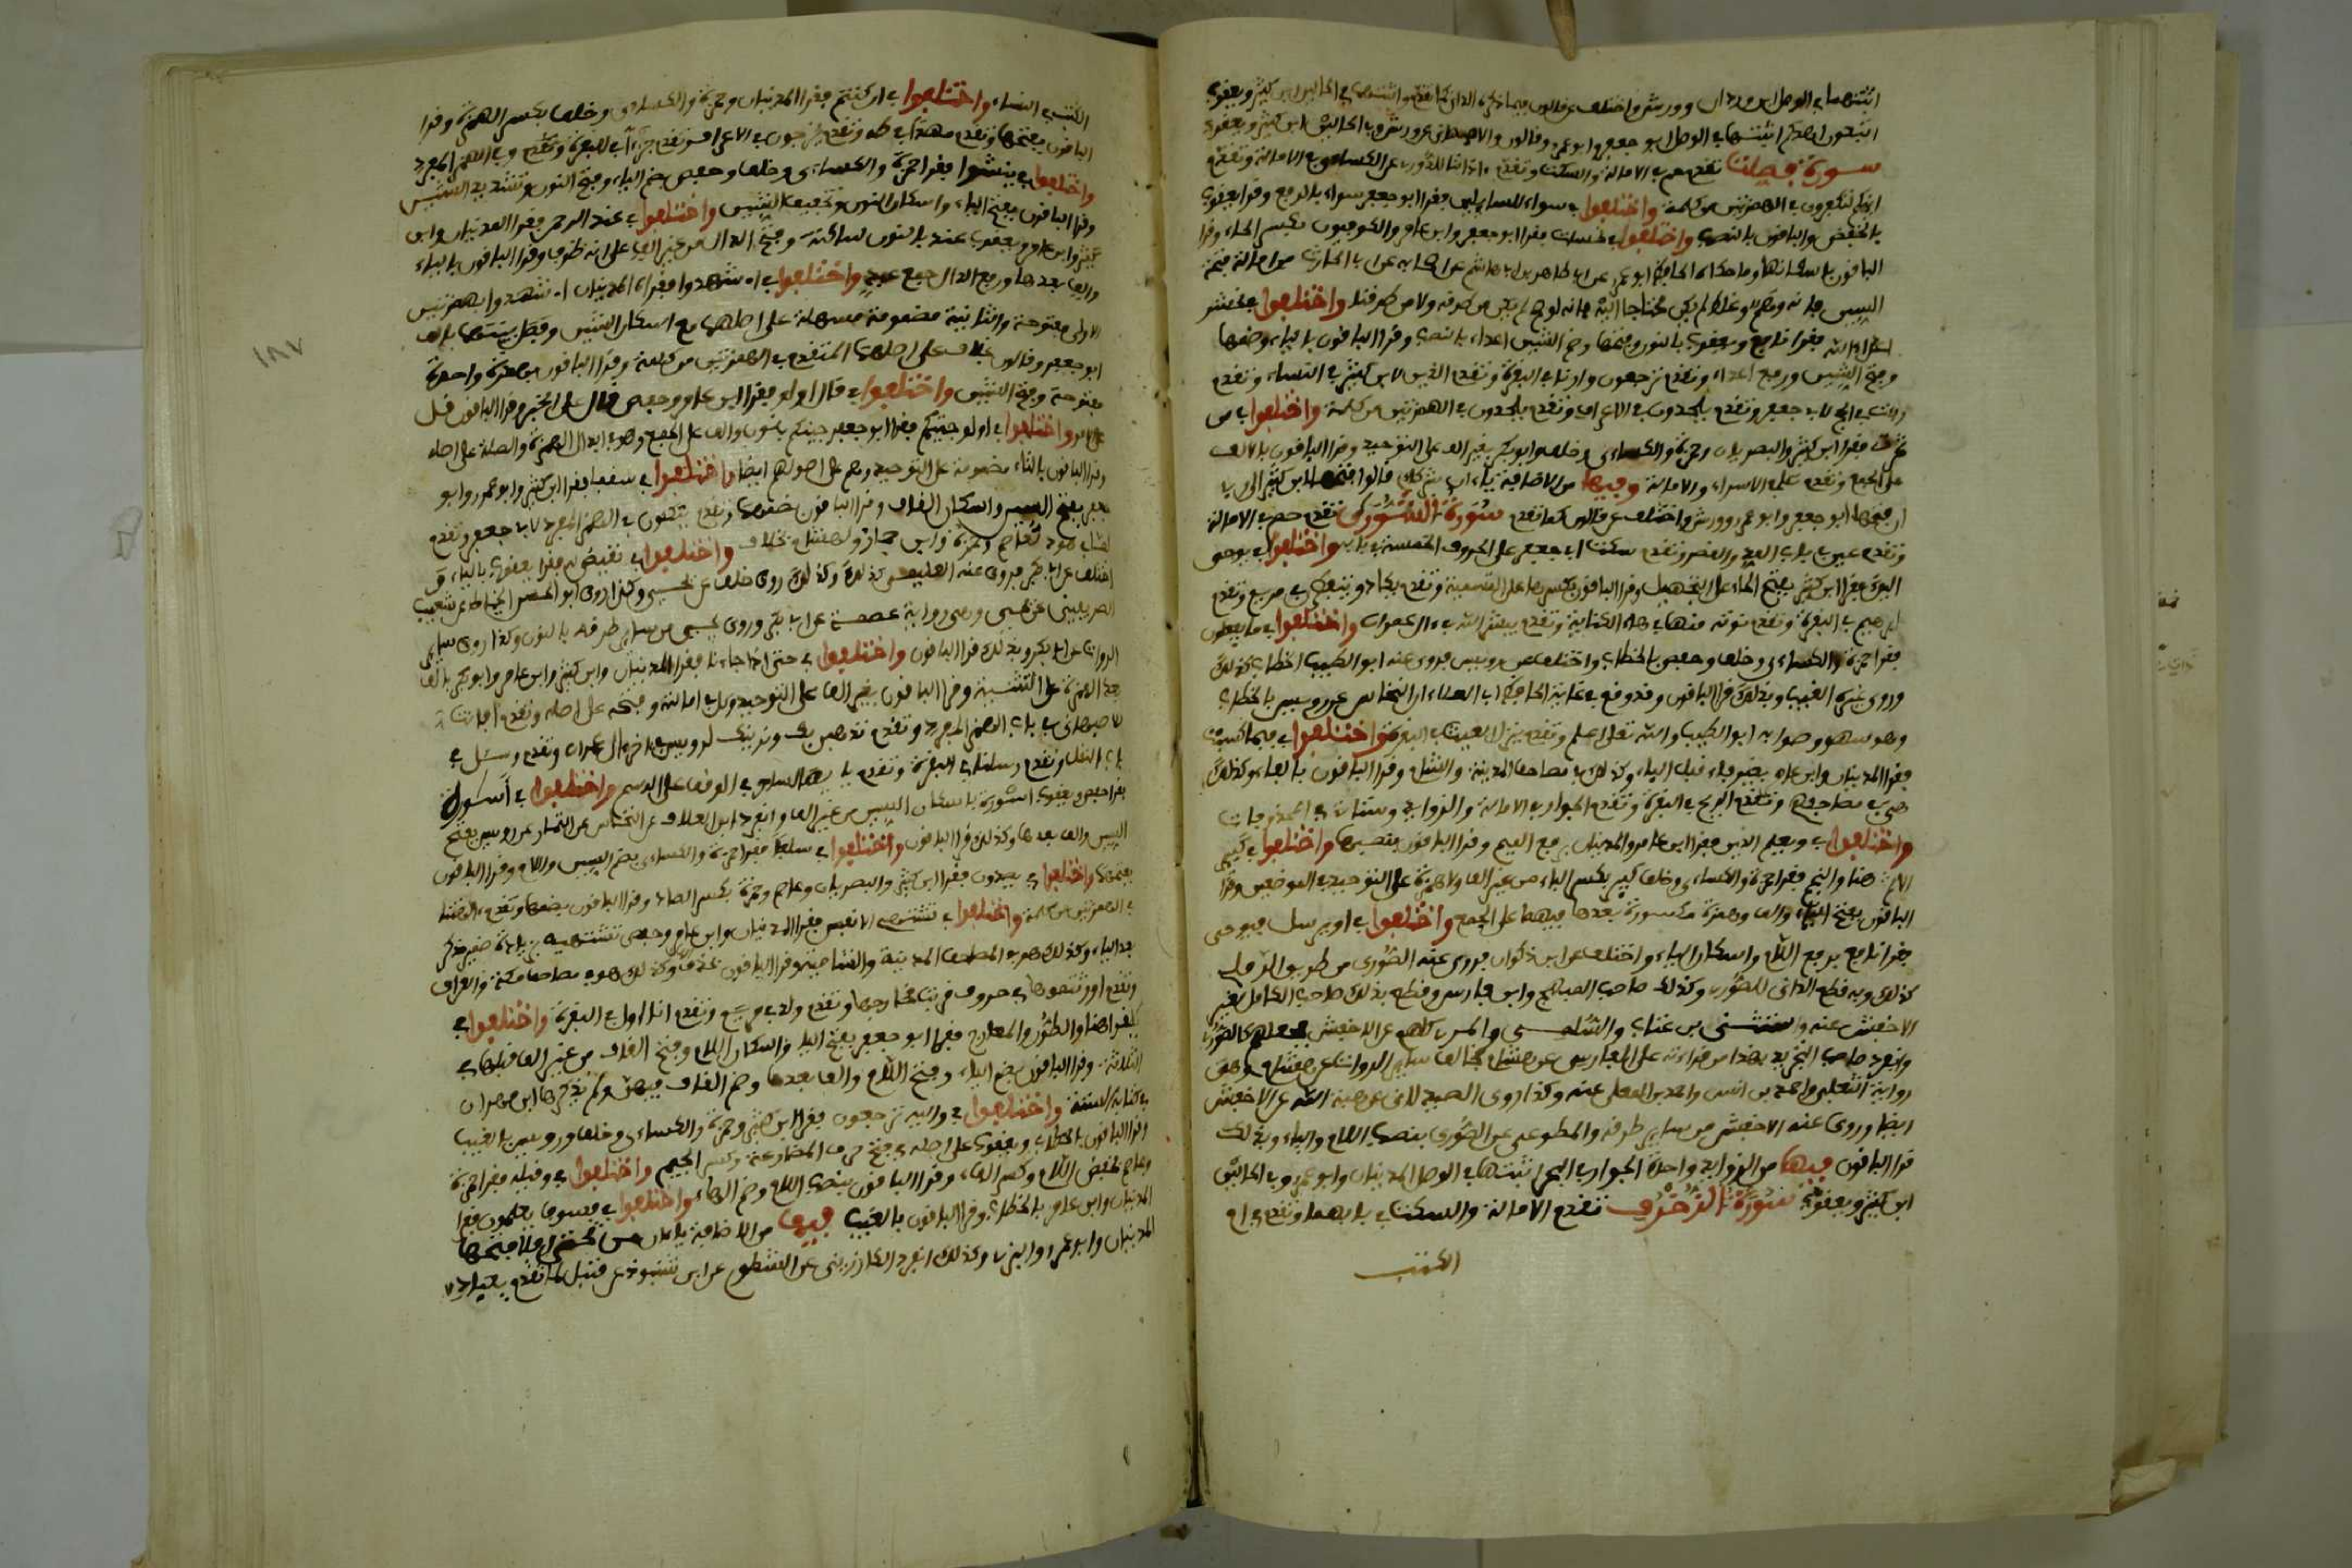 اثبتهما في الوصل ابن وردان وورش واختلف عن قالون فيما ذكره الداني كما تقدم واثبتهما في الحالين ابن كثير ويعقوب
اتبعون اهدكم اثبتها في الوصل ابو جعفر وابو عمرو وقالون والاصبهاني عن ورش وفي الحالين ابن كثير ويعقوب
سورة فصلت تقدم حم في الامالة والسكت وتقدم ءاذاننا للدوري عن الكسائي في الامالة وتقدم
ائنكم لتكفرون في الهمزتين من كلمة واختلفوا في سواء للسائلين فقرا ابو جعفر سواء بالرفع وقرا يعقوب
بالخفض والباقون بالنصب واختلفوا في نحسات فقرا ابو جعفر وابن عامر والكوفيون بكسر الحاء وقرا
الباقون باسكانها وما حكاه الحافظ ابو عمرو عن ابي طاهر بن ابي هاشم عن اصحابه عن ابي الحارث من امالة فتحة
السين فانه وهم وغلط لم يكن محتاجا اليه فانه لو صح لم يكن من طرقه ولا من طرقنا واختلفوا في يحشر
اعداء الله فقرا نافع ويعقوب بالنون وفتحها وضم الشين اعداء بالنصب وقرا الباقون بالياء وضمها
وفتح الشين ورفع اعداء وتقدم ترجعون وارنا في البقرة وتقدم الذين لابن كثير في النساء وتقدم
ربت في الحج لابي جعفر وتقدم يلحدون في الاعراف وتقدم ءاعجمي في الهمزتين من كلمة واختلفوا في من
ثمرت فقرا ابن كثير والبصريان وحمزة والكسائي وخلف وابو بكر بغير الف على التوحيد وقرا الباقون بالالف
على الجمع وتقدم ناى في الاسراء والامالة وفيها من الاضافة ياءان شركاءي قالوا فتحها ابن كثير الى ربي
ان فتحها ابو جعفر وابو عمرو وورش واختلف عن قالون كما تقدم سورة الشورى تقدم حم في الامالة
وتقدم عين في باب المد والقصر وتقدم سكت ابي جعفر على الحروف الخمسة في بابه واختلفوا في يوحى
اليك فقرا ابن كثير بفتح الحاء على التجهيل وقرا الباقون بكسرها على التسمية وتقدم يكاد ويتفطرن في مريم وتقدم
ابرهيم في البقرة وتقدم نوته منها في هاء الكناية وتقدم يبشر الله في ءال عمران واختلفوا في ما يفعلون
فقرا حمزة والكسائي وخلف وحفص بالخطاب واختلف عن رويس فروى عنه ابو الطيب الخطاب كذلك
وروى غيره الغيب وبذلك قرا الباقون وقد وقع في غاية الحافظ ابي العلاء ان النخاس عن رويس بالخطاب
وهو سهو وصوابه ابو الطيب والله تعلى اعلم وتقدم ينزل الغيث في البقرة واختلفوا في فبما كسبت
فقرا المدنيان وابن عامر بغير فاء قبل الباء وكذلك في مصاحف المدينة والشام وقرا الباقون بالفاء وكذلك
هي في مصاحفهم وتقدم الريح في البقرة وتقدم الجوار في الامالة والزوايد وستاتي في المحذوفات
واختلفوا في ويعلم الذين فقرا ابن عامر والمدنيان برفع الميم وقرا الباقون بنصبها واختلفوا في كبير
الاثم هنا والنجم فقرا حمزة والكسائي وخلف كبير بكسر الباء من غير الف ولا همزة على التوحيد في الموضعين وقرا
الباقون بفتح الباء والف وهمزة مكسورة بعدها فيهما على الجمع واختلفوا في او يرسل فيوحى
فقرا نافع برفع اللام واسكان الياء واختلف عن ابن ذكوان فروى عنه الصوري من طريق الرملي
كذلك وبه قطع الداني للصوري وكذلك صاحب المبهج وابن فارس وقطع بذلك صاحب الكامل لغير
الاخفش عنه واستثنى بن عتاب والسلمى والمر كلهم عن الاخفش فجعلهم كالصوري
وانفرد صاحب التجريد بهذا من قراءته على الفارسي عن هشام فخالف سائر الرواة عن هشام وهي
رواية الثعلبي واحمد بن انس واحمد بن المعلى عنه وكذا روى الصيدلاني عن هبة الله عن الاخفش
ايضا وروى عنه الاخفش من ساير طرقه والمطوعي عن الصوري بنصب اللام والياء وبذلك
قرا الباقون فيها من الزوايد واحدة الجوار في البحر اثبتها في الوصل المدنيان وابو عمرو وفي الحالين
ابن كثير ويعقوب سورة الزخرف تقدم الامالة والسكت في بابهما وتقدم في ام
الكتب
الكتب في النساء واختلفوا في ان كنتم فقرا المدنيان وحمزة والكسائي وخلف بكسر الهمزة وقرا
الباقون بفتحها وتقدم مهدا في طه وتقدم تخرجون في الاعراف وتقدم جزءا في البقرة وتقدم وفي الهمز المفرد
واختلفوا في ينشوا فقرا حمزة والكسائي وخلف وحفص بضم الياء وفتح النون وتشديد الشين
وقرا الباقون بفتح الياء واسكان النون وتخفيف الشين واختلفوا في عند الرحمن فقرا المدنيان وابن
كثير وابن عامر ويعقوب عند بالنون ساكنة وفتح الدال من غير الف على انه ظرف وقرا الباقون بالباء
والف بعدها ورفع الدال جمع عبد واختلفوا في اشهدوا فقراه المدنيان اشهدوا بهمزتين
الاولى مفتوحة والثانية مضمومة مسهلة على اصلهما مع اسكان الشين وفصل بينهما بالف
ابو جعفر وقالون بخلاف على اصلهما المتقدم في الهمزتين من كلمة وقرا الباقون بهمزة واحدة
مفتوحة وفتح الشين واختلفوا في قال اولو فقرا ابن عامر وحفص قال على الخبر وقرا الباقون قل
على الامر واختلفوا في اولو جيتكم فقرا ابو جعفر جيناكم بالنون والف على الجمع وهو في ابدال الهمزة والصلة على اصله
وقرا الباقون بالتاء مضمومة على التوحيد وهم على اصولهم ايضا واختلفوا في سقفا فقرا ابن كثير وابو عمرو وابو
جعفر بفتح السين واسكان القاف وقرا الباقون بضمهما وتقدم يتكون في الهمز المفرد لابي جعفر وتقدم
لما في هود لعاصم وحمزة وابن جماز وهشام بخلاف واختلفوا في نقيض له فقرا يعقوب بالياء و
اختلف عن ابي بكر فروى عنه العليمي كذلك وكذلك روى خلف عن يحيى وكذا روى ابو الحسن الخياط عن شعيب
الصريفيني عن يحيى وهي رواية عصمة عن ابي بكر وروى يحيى من ساير طرقه بالنون وكذا روى ساير
الرواة عن ابي بكر وبذلك قرا الباقون واختلفوا في حتى اذا جاءنا فقرا المدنيان وابن كثير وابن عامر وابو بكر بالف
بعد الهمزة على التثنية وقرا الباقون بغير الف على التوحيد وكل في امالته وفتحه على اصله وتقدم افانت
للاصبهاني في باب الهمز المفرد وتقدم نذهبن بك ونرينك لرويس في اخر ال عمران وتقدم وسئل في
باب النقل وتقدم رسلنا في البقرة وتقدم يا يه الساحر في الوقف على المرسوم واختلفوا في اسورة
فقرا حفص ويعقوب اسورة باسكان السين من غير الف وانفرد ابن العلاف عن النخاس عن التمار عن رويس بفتح
السين والف بعدها وكذلك قرا الباقون واختلفوا في سلفا فقرا حمزة والكسائي بضم السين واللام وقرا الباقون
بفتحهما واختلفوا في يصدون فقرا ابن كثير والبصريان وعاصم وحمزة بكسر الصاد وقرا الباقون بضمها وتقدم ءالهتنا
في الهمزتين من كلمة واختلفوا في تشتهيه الانفس فقرا المدنيان وابن عامر وحفص تشتهيه بزيادة ضمير مذكر
بعد الياء وكذلك هو في المصاحف المدنية والشامية وقرا الباقون بحذف الهاء وكذلك هو في مصاحف مكة والعراق
وتقدم اورثتموها في حروف قربت مخارجها وتقدم ولد في مريم وتقدم انا اول في البقرة واختلفوا في
يلقوا هنا والطور والمعارج فقرا ابو جعفر بفتح الياء واسكان اللام وفتح القاف من غير الف قبلها في
الثلاثة وقرا الباقون بضم الياء وفتح اللام والف بعدها وضم القاف فيهن ولم يذكرها ابن مهران
في كتابه البتة واختلفوا في واليه ترجعون فقرا ابن كثير وحمزة والكسائي وخلف ورويس بالغيب
وقرا الباقون بالخطاب ويعقوب على اصله في فتح حرف المضارعة وكسر الجيم واختلفوا في وقيله فقرا حمزة
وعاصم بخفض اللام وكسر الهاء وقرا الباقون بنصب اللام وضم الهاء واختلفوا في فسوف يعلمون فقرا
المدنيان وابن عامر بالخطاب وقرا الباقون بالغيب فيها من الاضافة ياءان من تحتي افلا فتحها
المدنيان وابو عمرو والبزي وكذلك انفرد الكارزيني عن الشطوي عن ابن شنبوذ عن قنبل كما تقدم يعباد لا
١٨٧